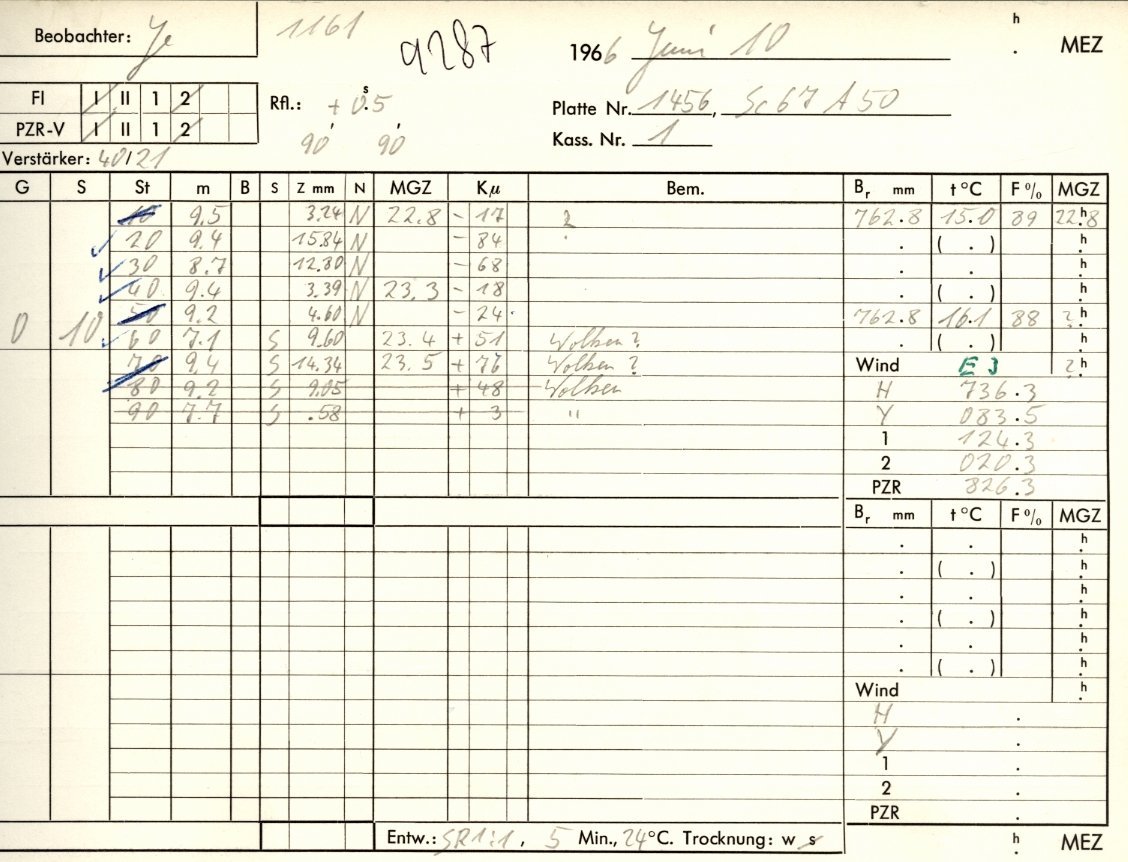 Beobachter: Je 1161 9287 1966 Juni 10 h . MEZ
FI I II 1 2 Rfl.: + 0.5 s Platte Nr. 1456, Sc 67 A 50
PZR-V I II 1 2 90' 90' Kass. Nr. 1
Verstärker: 40/21
G S St m B S Z mm N MGZ Kμ Bem. Br mm t °C F % MGZ
10 9.5 3.24 N 22.8 - 17 ? 762.8 15.0 89 22.8 h
20 9.4 15.84 N - 84 . ( . ) h .
30 8.7 12.80 N - 68 . . h .
40 9.4 3.39 N 23.3 - 18 . ( . ) h .
50 9.2 4.60 N - 24 762.8 16.1 88 ? h
0 10 60 7.1 S 9.60 23.4 + 51 Wolken ? . ( . ) h .
70 9.4 S 14.34 23.5 + 76 Wolken ? Wind E 3 ? h
80 9.2 S 9.05 + 48 Wolken H 736.3
90 7.7 S .58 + 3 " Y 083.5
1 124.3
2 020.3
PZR 826.3
Br mm t °C F % MGZ
. . h .
. ( . ) h .
. . h .
. ( . ) h .
. . h .
. ( . ) h .
Wind h .
H .
Y .
1 .
2 .
PZR .
Entw.: SR1:1, 5 Min., 24 °C. Trocknung: w s h . MEZ